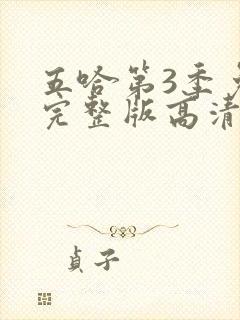 五哈第3季
完整版高清
貞子